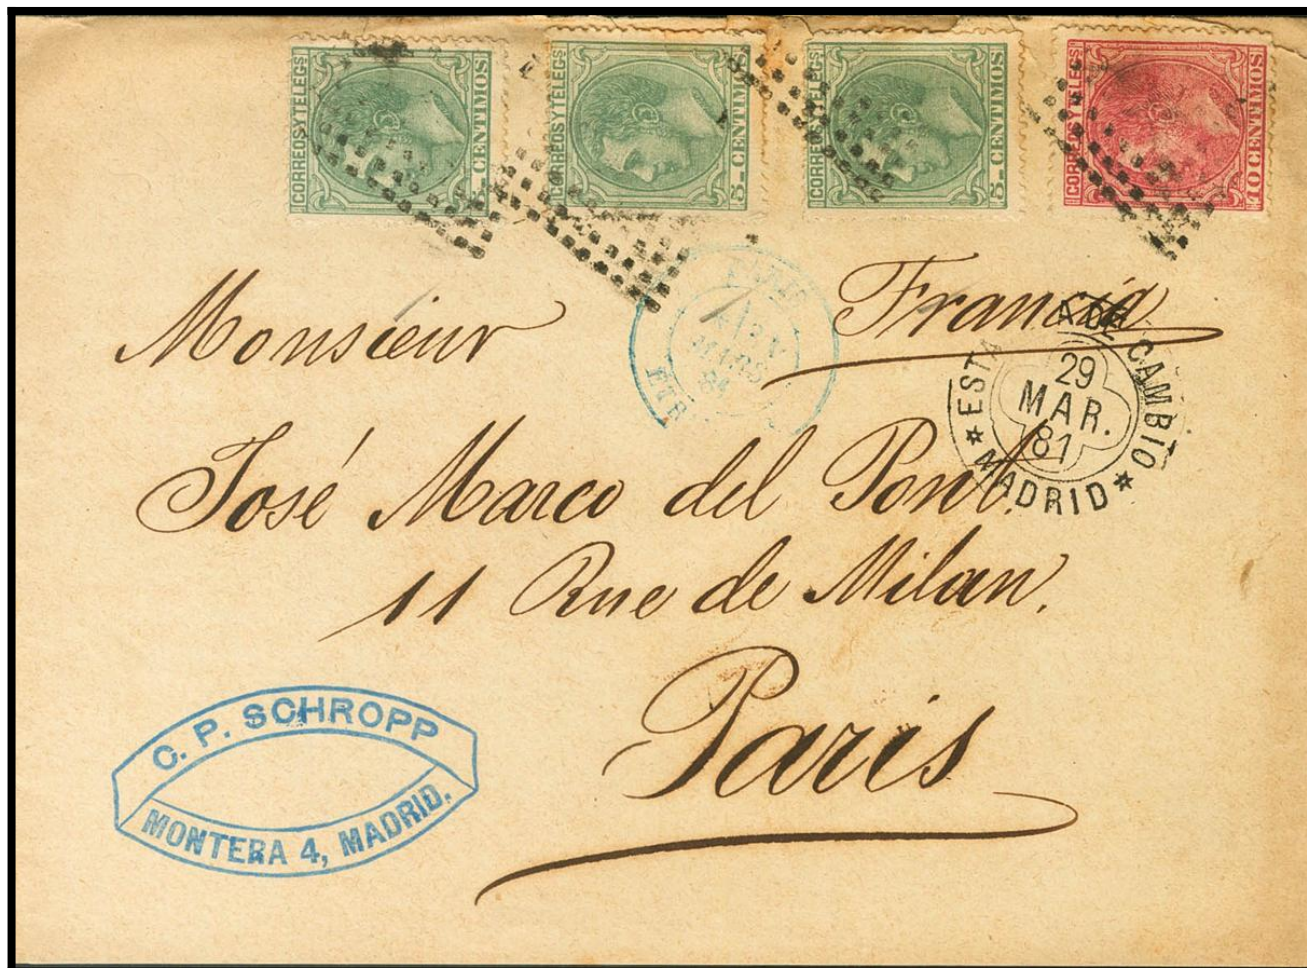 CORREOS Y TELEGS
CENTIMOS
CORREOS Y TELEGS
5 CENTIMOS
CORREOS Y TELEGS
5 CENTIMOS
CORREOS Y TELEGS
10 CENTIMOS
Monsieur Francia
MARS
ESTA A DE CAMBIO
29
MAR.
81
* MADRID *
José Marco del Pont.
11 Rue de Milan.
Paris
C. P. SCHROPP
MONTERA 4, MADRID.